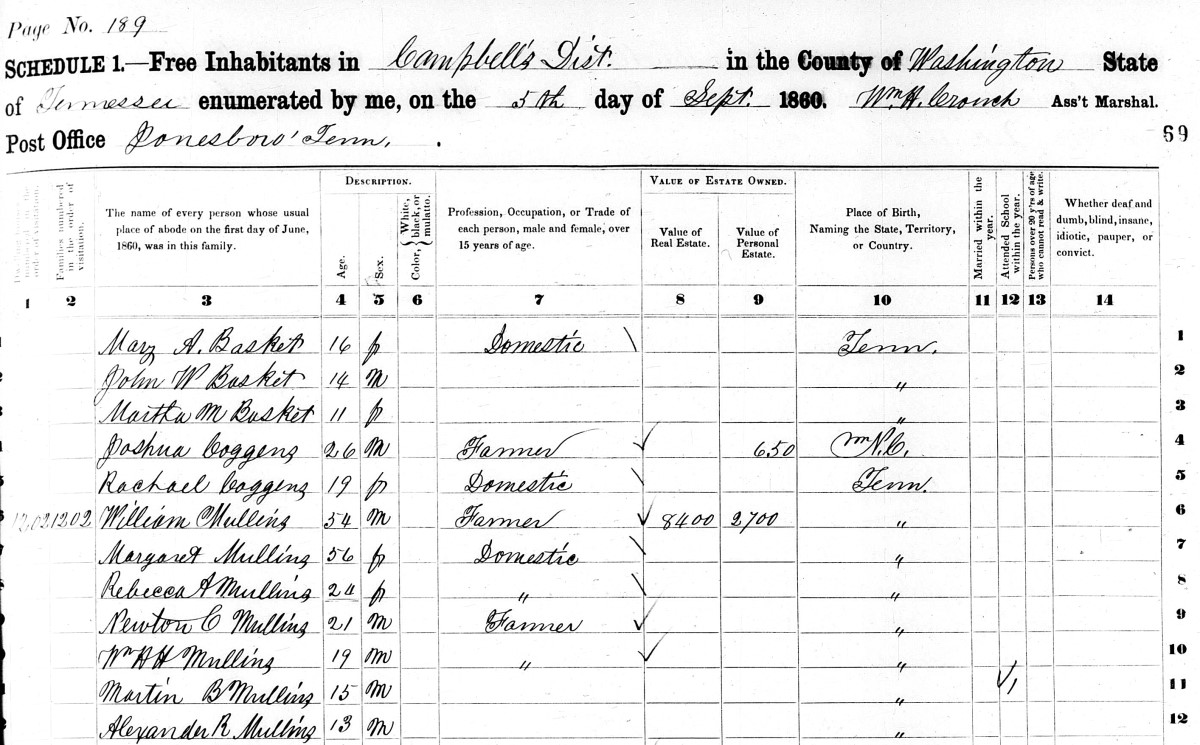 Page No. 189
SCHEDULE 1.—Free Inhabitants in Campbell's Dist. in the County of Washington State
of Tennessee enumerated by me, on the 5th day of Sept. 1860. Wm H. Crouch Ass't Marshal.
Post Office Jonesboro' Tenn. 69
DESCRIPTION. VALUE OF ESTATE OWNED.
Families numbered in the order of visitation.
The name of every person whose usual place of abode on the first day of June, 1860, was in this family.
Age.
Sex.
Color, {White, black, or mulatto.
Profession, Occupation, or Trade of each person, male and female, over 15 years of age.
Value of Real Estate.
Value of Personal Estate.
Place of Birth, Naming the State, Territory, or Country.
Married within the year.
Attended School within the year.
Persons over 20 y'rs of age who cannot read & write.
Whether deaf and dumb, blind, insane, idiotic, pauper, or convict.
1 2 3 4 5 6 7 8 9 10 11 12 13 14
1 Mary A. Basket 16 f Domestic \ Tenn. 1
2 John W Basket 14 m " 2
3 Martha M Basket 11 f " 3
4 Joshua Coggens 26 m Farmer ✓ 650 N.C. 4
5 Rachael Coggens 19 f Domestic \ Tenn. 5
6 1202 1202 William Mullins 54 m Farmer ✓ 8400 2700 " 6
7 Margaret Mullins 56 f Domestic \ " 7
8 Rebecca A Mullins 24 f " \ " 8
9 Newton C Mullins 21 m Farmer ✓ " 9
Wm H H Mullins 19 m " ✓ " 10
Martin B Mullins 15 m " ✓1 11
Alexander R Mullins 13 m " 12